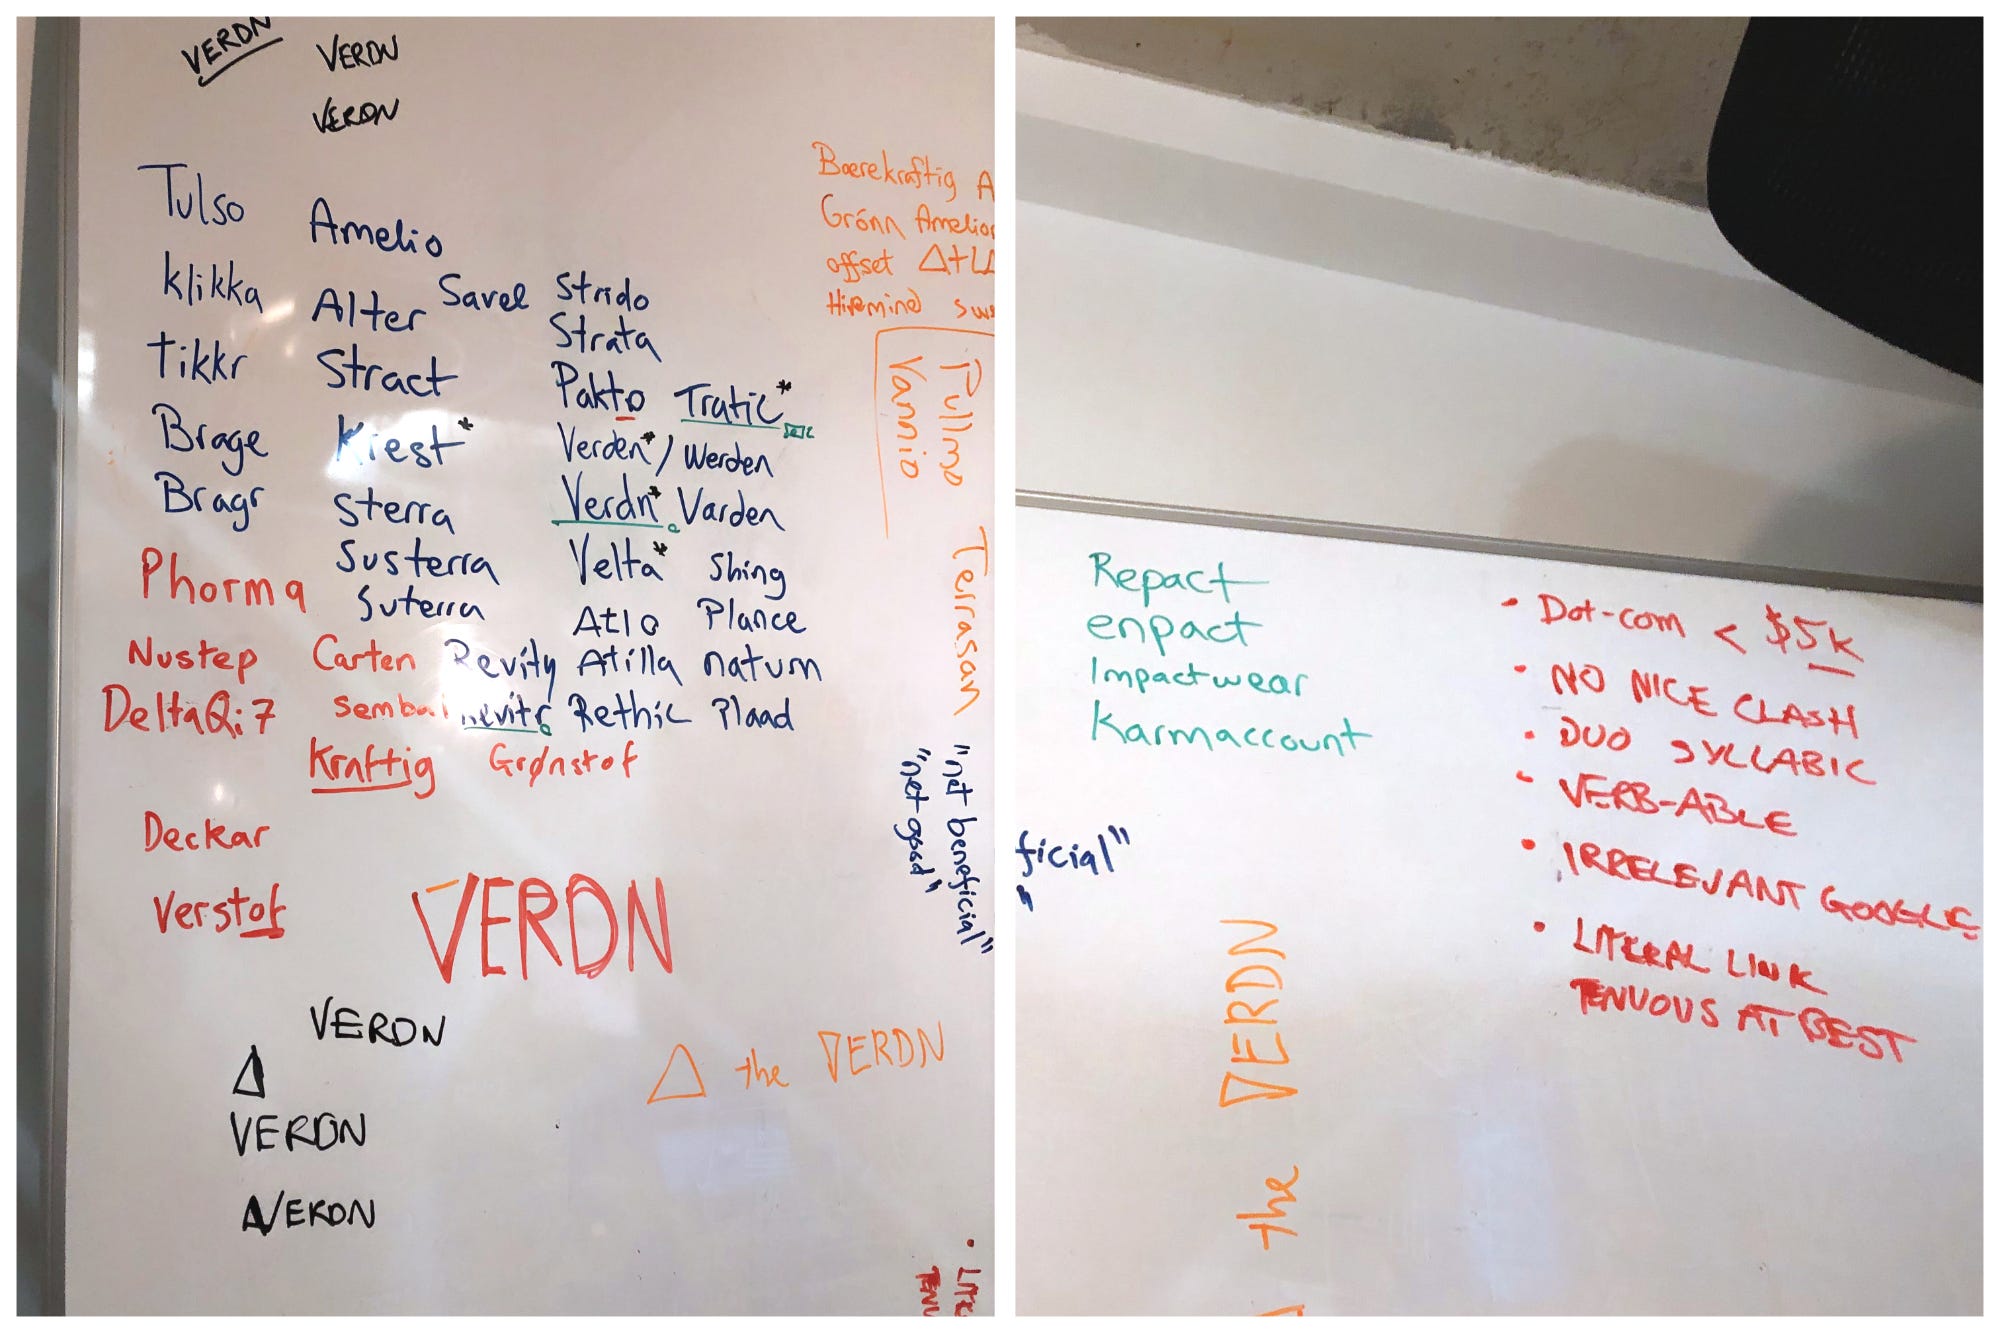 VERDN VERDN
VERDN
Tulso Amelio
Klikka Alter Savel Strido
Strata
Tikkr Stract Pakto Tratic*
Brage Kiest* Verden* / Werden
Bragr Sterra Verdn* Varden
Susterra Velta* Shing
Phorma Suterra Atlo Plance
Nustep Carten Revity Atilla naturn
DeltaQi7 Revitr Rethic Plaad
Kraftig Grønstof
Deckar
Verstof
VERDN
VERDN
Δ
VERDN
VERDN
Δ the VERDN
Bærekraftig A
Grönn Amelior
offset Δ+LL
Hivemind sus
Pullmo
Vannio
Terrasan
"net beneficial"
"net good"
• LITE
TENU
Repact
enpact
Impactwear
Karmaccount
ficial"
"
the VERDN
• Dot-com < $5k
• NO NICE CLASH
• DUO SYLLABIC
• VERB-ABLE
• IRRELEVANT GOOGLE
• LITERAL LINK
TENUOUS AT BEST